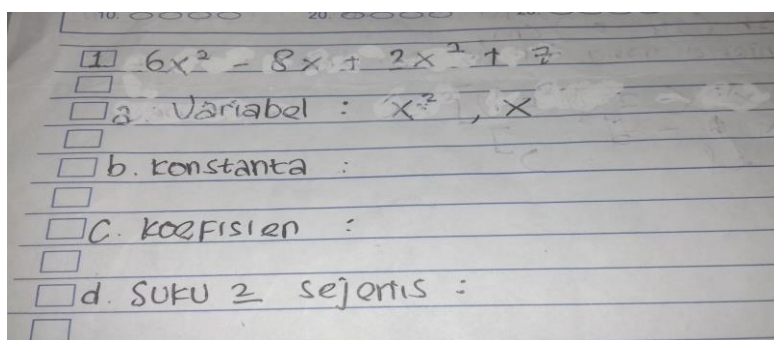 10. 20.
1 6x² - 8x + 2x² + 7
a. Variabel : x², x
b. konstanta :
C. koefisien :
d. SUKU 2 sejenis :